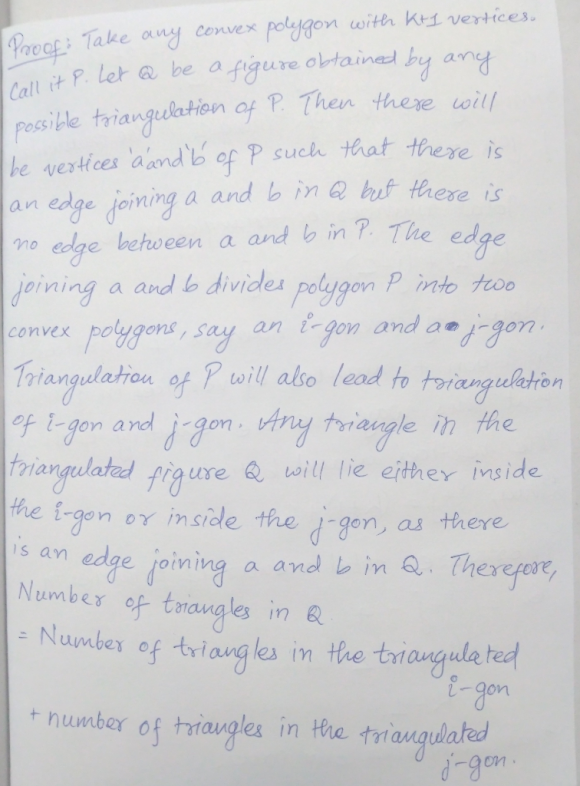 Proof: Take any convex polygon with k+1 vertices.
Call it P. Let Q be a figure obtained by any
possible triangulation of P. Then there will
be vertices 'a' and 'b' of P such that there is
an edge joining a and b in Q but there is
no edge between a and b in P. The edge
joining a and b divides polygon P into two
convex polygons, say an i-gon and a j-gon.
Triangulation of P will also lead to triangulation
of i-gon and j-gon. Any triangle in the
triangulated figure Q will lie either inside
the i-gon or inside the j-gon, as there
is an edge joining a and b in Q. Therefore,
Number of triangles in Q
= Number of triangles in the triangulated
i-gon
+ number of triangles in the triangulated
j-gon.